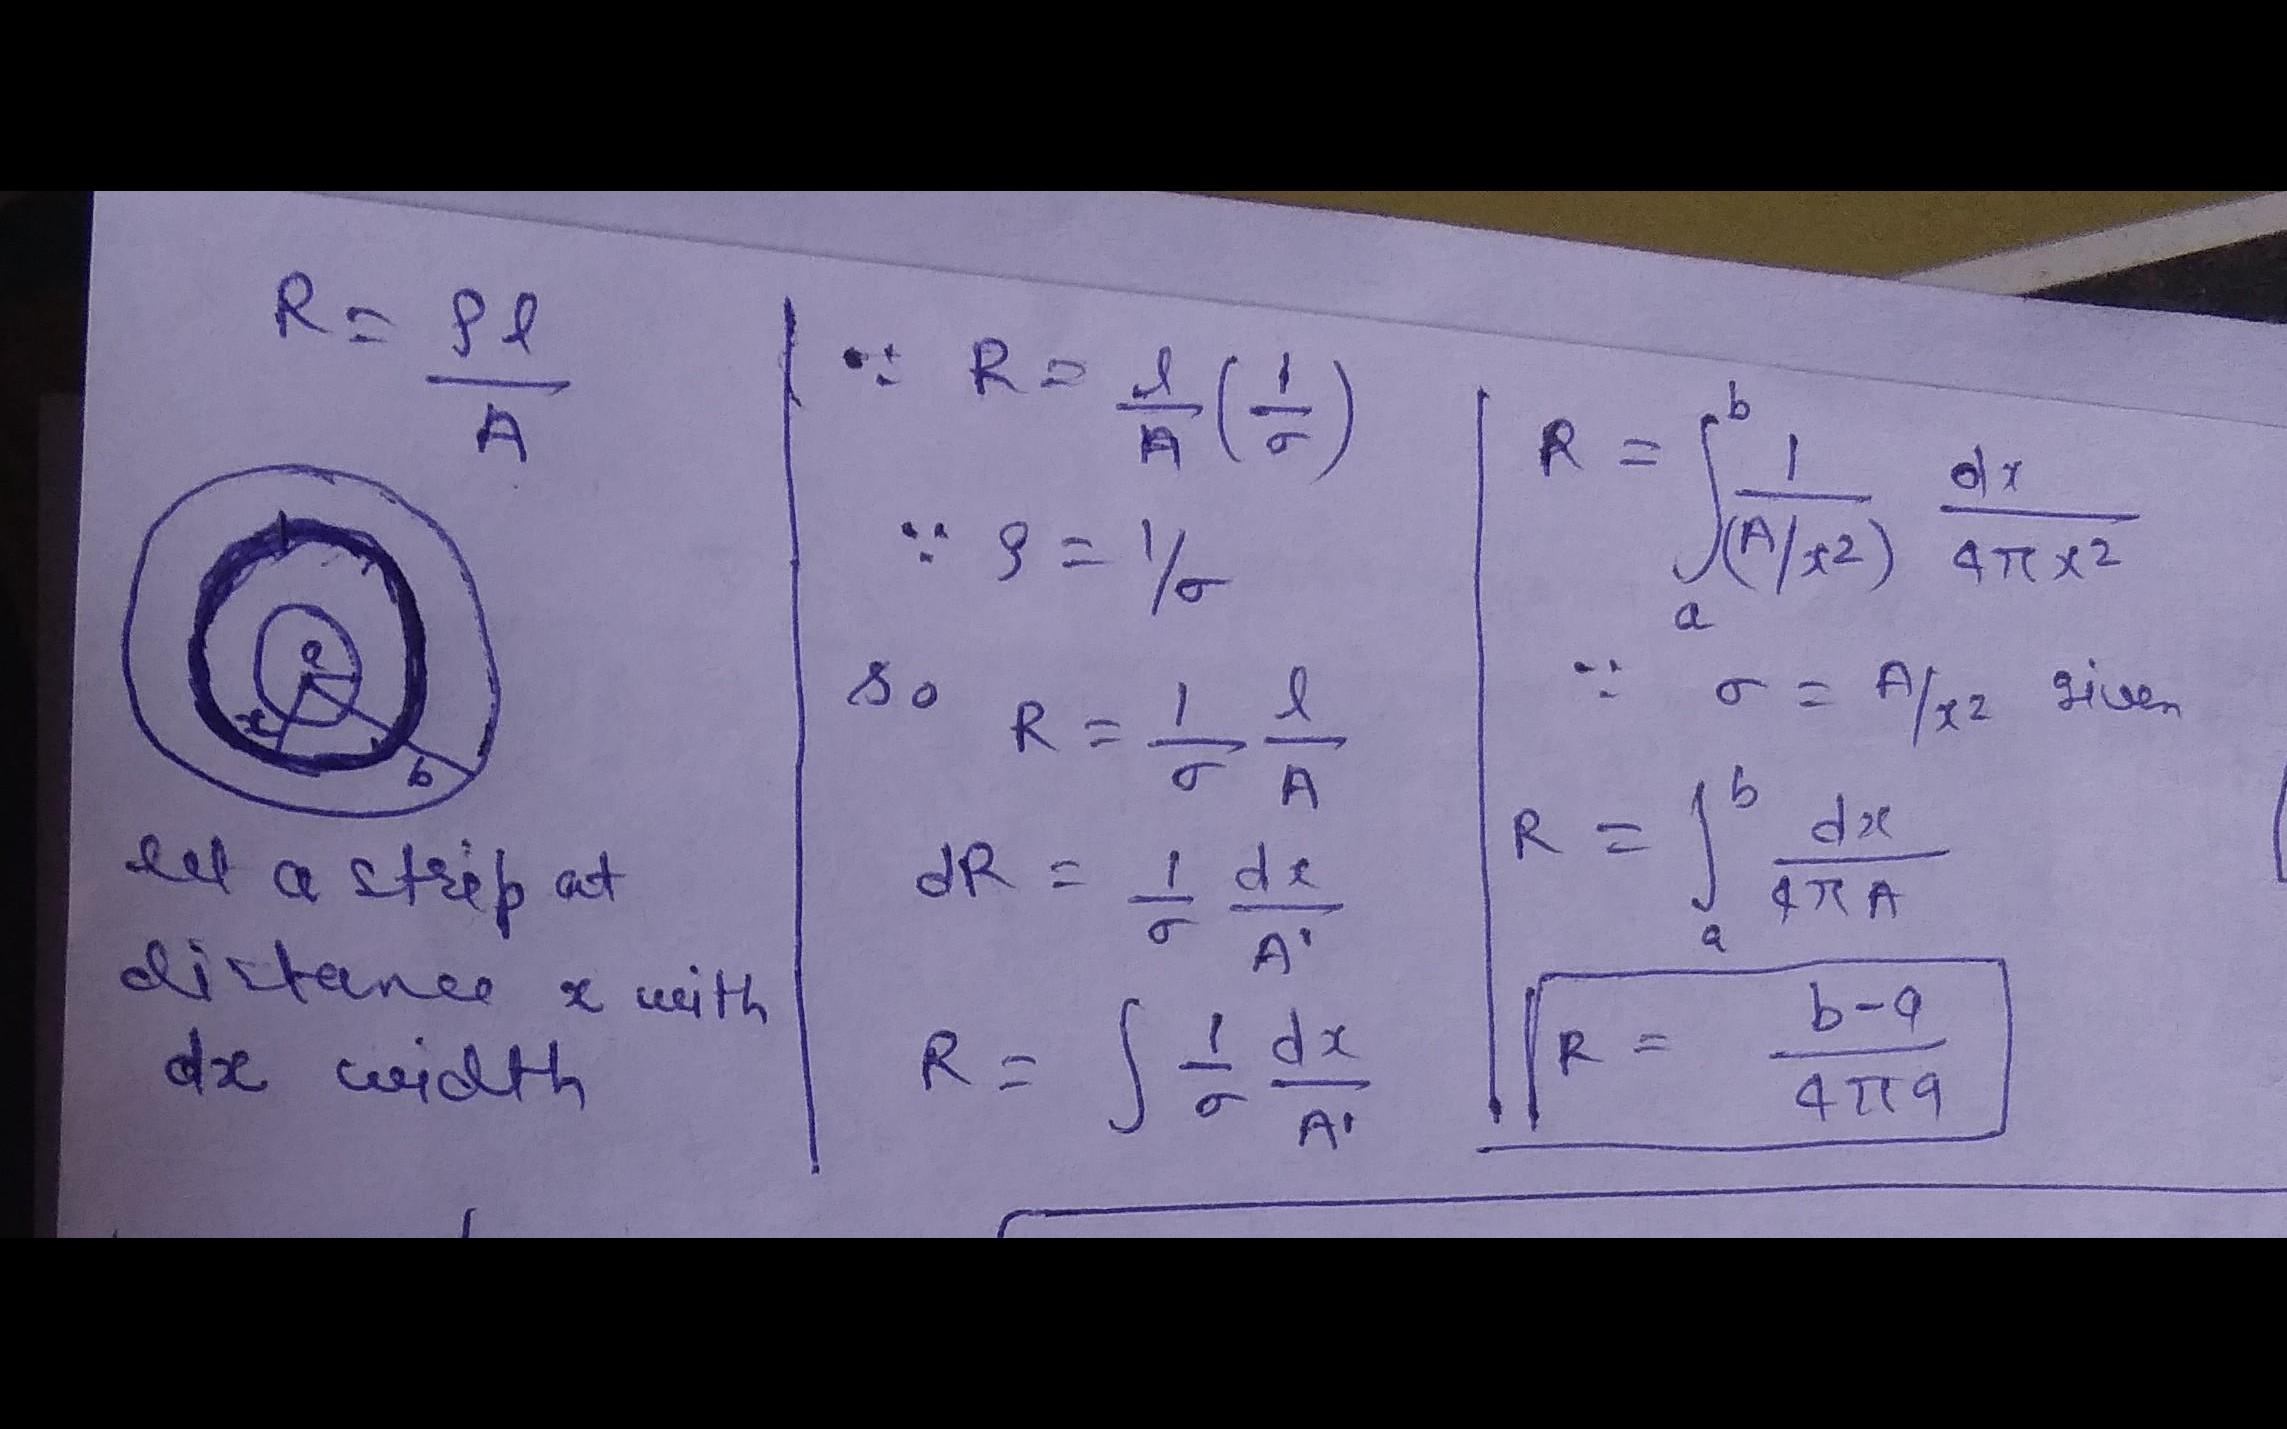 R = ρl/A
a
x
b
let a strip at
distance x with
dx width
∵ R = l/A (1/σ)
∵ ρ = 1/σ
so R = 1/σ l/A
dR = 1/σ dx/A'
R = ∫ 1/σ dx/A'
R = ∫_a^b 1/(A/x2) dx/4πx2
∵ σ = A/x2 given
R = ∫_a^b dx/4πA
R = b-a/4πa